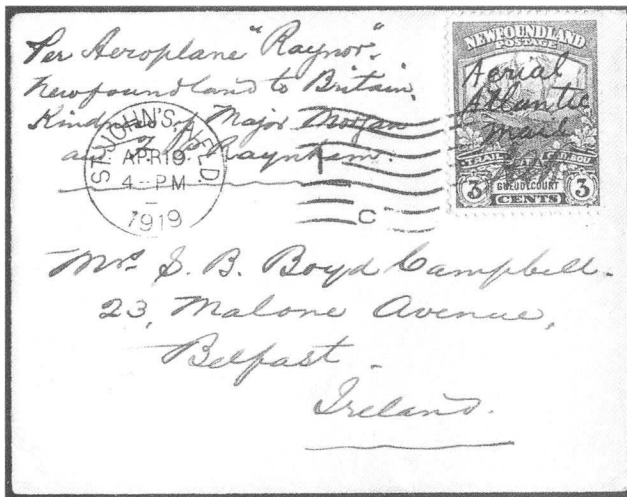 Per Aeroplane "Raynor".
Newfoundland to Britain.
Kindness of Major Morgan
J. P. Raynham.
ST. JOHN'S, N.F.L.D.
APR 19
4--PM
1919
C
NEWFOUNDLAND
POSTAGE
Aerial
Atlantic
Mail
TRAIL CARIBOU
GUEUDECOURT
3 3
CENTS
Mrs S. B. Boyd Campbell.
23, Malone Avenue,
Belfast.
Ireland.